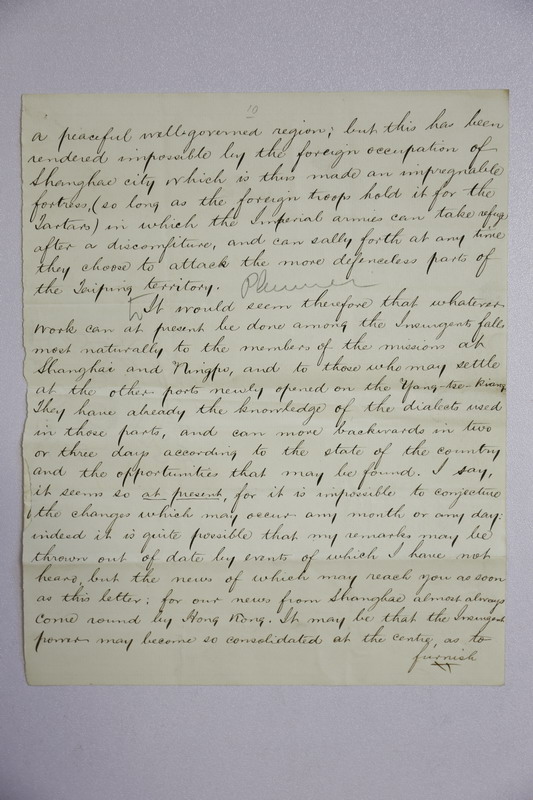 10
a peaceful well-governed region; but this has been
rendered impossible by the foreign occupation of
Shanghae city which is thus made an impregnable
fortress, (so long as the foreign troops hold it for the
Tartars) in which the Imperial armies can take refuge
after a discomfiture, and can sally forth at any time
they choose to attack the more defenceless parts of
the Taiping territory.
It would seem therefore that whatever
work can at present be done among the Insurgents falls
most naturally to the members of the missions at
Shanghai and Ningpo, and to those who may settle
at the other ports newly opened on the Yang-tse-Kiang.
They have already the knowledge of the dialects used
in those parts, and can move backwards in two
or three days according to the state of the country
and the opportunities that may be found. I say,
it seems so at present, for it is impossible to conjecture
the changes which may occur any month or any day:
indeed it is quite possible that my remarks may be
thrown out of date by events of which I have not
heard, but the news of which may reach you as soon
as this letter; for our news from Shanghae almost always
come round by Hong Kong. It may be that the Insurgent
power may become so consolidated at the centre, as to
furnish